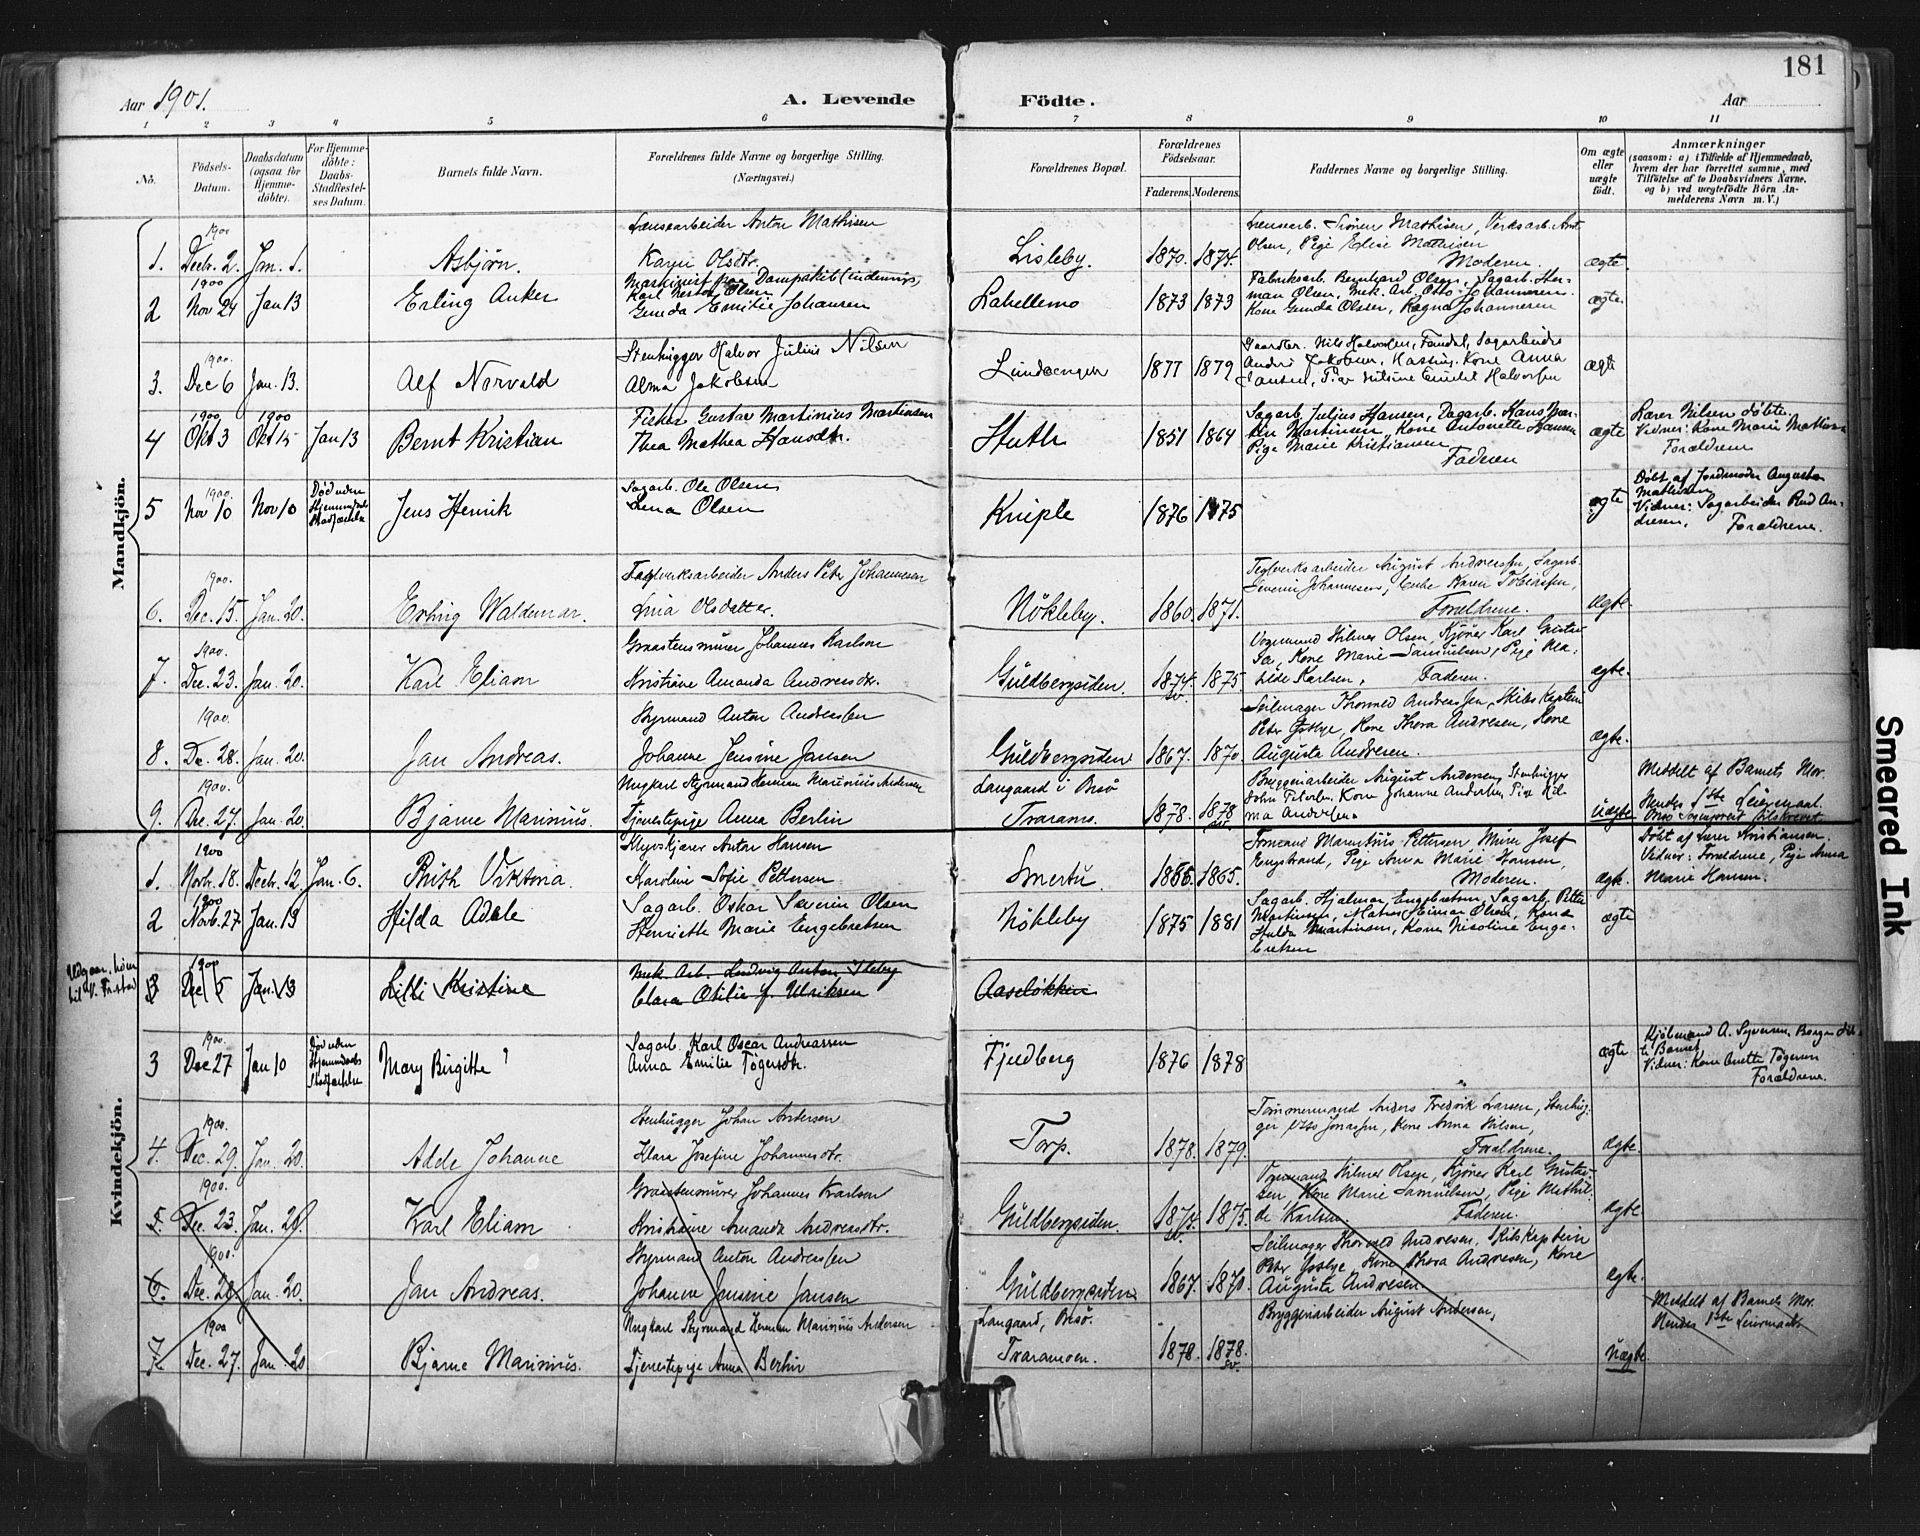 181
Aar 1901.
A. Levende Födte.
Aar
1 2 3 4 5 6 7 8 9 10 11
No.
Födsels-Datum.
Daabsdatum (ogsaa for Hjemme-döbte).
For Hjemme-döbte: Daabs-Stadfæstel-ses Datum.
Barnets fulde Navn.
Forældrenes fulde Navne og borgerlige Stilling. (Næringsvei.)
Forældrenes Bopæl.
Forældrenes Födselsaar.
Faderens. Moderens.
Faddernes Navne og borgerlige Stilling.
Om ægte eller uægte födt.
Anmærkninger (saasom: a) i Tilfælde af Hjemmedaab, hvem der har forrettet samme, med Tilföielse af to Daabsvidners Navne, og b) ved uægtefödte Börn An-melderens Navn m. V.)
Mandkjön.
1. 1900 Decbr. 2. Jan. 1. Asbjørn. Lensearbeider Anton Mathisen
Karen Olsdtr. Lisleby. 1870. 1874. Moderen. ægte.
2 1900 Nov 24 Jan 13 Erling Anker
Karl Nestor Olsen
Gunda Emilie Johansen Labellemo 1873 1873
Fabriksarb. Bernhard Olsen, Sagarb. Her-
man Olsen, Mek. Arb. Otto Johannesen.
Kone Gunda Olsen, Ragna Johannesen ægte
3. 1900. Dec 6 Jan. 13. Alf Norvald Stenhugger Halvor Julius Nilsen
Alma Jakobsen 1877 1879 ægte
4 1900 Okt 3 1900 Okt 15 Jan 13 Bernt Kristian Fisker Gustav Martinius Martinsen
Thea Mathea Hansdtr. Huth 1851 1864
Sagarb. Julius Hansen, Dagarb. Hans Mar-
tin Martinsen, Kone Antonette Hansen
Pige Marie Kristiansen
Faderen ægte
Lærer Nilsen døbte.
Vidner: Kone Marie Mathisen
Forældrene
5 1900. Nov 10 Nov 10 Død uden Hjemmedaab Stadfæstelse Jens Henrik Sagarb. Ole Olsen
Lena Olsen Kniple 1876 1875 ægte
Døbt af Jordmoder Augusta
Mathisen
Vidner: Sagarbeider Red An-
dresen, Forældrene.
6. 1900. Dec. 15. Jan. 20. Erling Waldemar. Teglverksarbeider Anders Peter Johannesen
Lina Olsdatter. Nökleby. 1860. 1871.
Teglverksarbeider August Andreassen, Sagarb.
Severin Johannesen, Enke Karen Tobiassen,
Forældrene. ægte.
7. 1900. Dec. 23. Jan. 20. Karl Eliam Graastensmurer Johannes Karlson
Kristiane Amanda Andreasdtr. Guldbergsiden. 1874. sv. 1875
Vognmand Hilmer Olsen, Kjører Karl Gustav
Kone Marie Samuelsen, Pige Ma-
tilde Karlsen, Faderen. ægte.
8. 1900. De. 28. Jan. 20. Jan Andreas. Styrmand Anton Andreassen
Johanne Jensine Jansen Guldbergsiden 1867. 1870.
Seilmager Thorvald Andreassen, Skibskaptein
Peter Kone Thora Andresen, Kone
Augusta Andresen. ægte.
9. 1900. Dec. 27. Jan. 20. Bjarne Marinius. Ungkarl Styrmand Herman Marinius Andersen
Tjenestepige Anna Berlin Langaard i Onsö
1878. 1878 sv.
Bryggeriarbeider August Andersen, Stenhugger
Kone Johanne Andersen, Pige Hil-
ma Andersen uægte
Meddelt af Barnets Mor.
Hendes 1ste Leiermaal.
Onsö Sogneprest tilskrevet.
Kvindekjön.
1. 1900 Novbr. 18. Decbr. 12. Jan. 6. Ruth Viktoria. Anton Hansen
Karoline Sofie Pettersen Smertu. 1866. 1865.
Formand Marentius Pettersen Murer Josef
Engstrand, Pige Anna Marie Hansen,
Moderen. ægte.
Döbt af Lærer Kristiansen.
Vidner: Forældrene, Pige Anna
Marie Hansen.
2 1900 Novb. 27 Jan. 13 Hilda Adele Sagarb. Oskar Severin Olsen
Henriette Marie Engebretsen Nökleby 1875 1881
Sagarb. Hjalmar Engebretsen, Sagarb. Petter
Martinsen, Matros Heimar Olsen, Kone
Hulda Martinsen, Kone Nisoline Enge-
bretsen ægte
Udgaar, hører
til V. Fr.stad
3 1900 Dec 5 Jan. 13 Lilli Kristine Mek. Arb. Ludvig Anton Ileby
Clara Otilie f. Ulriksen Aaselökken
3 1900. Dec 27 Jan 10 Død uden Hjemmedaabs Stadfæstelse Mary Birgitte ? Sagarb. Karl Oscar Andreassen
Anna Emilie Tögersdtr. Fjeldberg 1876 1878 ægte
Kjölmand A. Syversen, Borge döb-
te Barnet
Vidner: Kone Anette Tögersen
Forældrene.
4. 1900. Dec. 29. Jan. 20. Adde Johanne Stenhugger Johan Andersen
Klara Josefine Johannesdtr. Torp. 1878. 1879.
Tömmermand Anders Fredrik Larsen, Stenhug-
ger Otto Jonassen, Kone Anna Nilsen,
Forældrene. ægte.
5. 1900. Dec. 23. Jan. 20. Karl Eliam Graastensmurer Johannes Karlson
Kristiane Amanda Andreasdtr. Guldbergsiden. 1874. sv. 1875.
Vognmand Hilmer Olsen, Kjører Karl Gustav-
sen, Kone Marie Samuelsen, Pige Mathil-
de Karlsen Faderen. ægte.
6. 1900. Dec. 28. Jan. 20. Jan Andreas. Styrmand Anton Andreassen
Johanne Jensine Jansen Guldbergsiden 1867. 1870.
Seilmager Thorvald Andresen, Skibskaptein
Peter Kone Thora Andresen, Kone
Augusta Andresen ægte.
7. 1900 Dec. 27. Jan. 20 Bjarne Marinius. Ungkarl Styrmand Herman Marinius Andersen
Tjenestepige Anna Berlin Langaard, Onsö.
1878. 1878. sv.
Bryggeriarbeider August Andersen, uægte
Meddelt af Barnets Mor.
Hendes 1ste Leiermaal
Smeared Ink